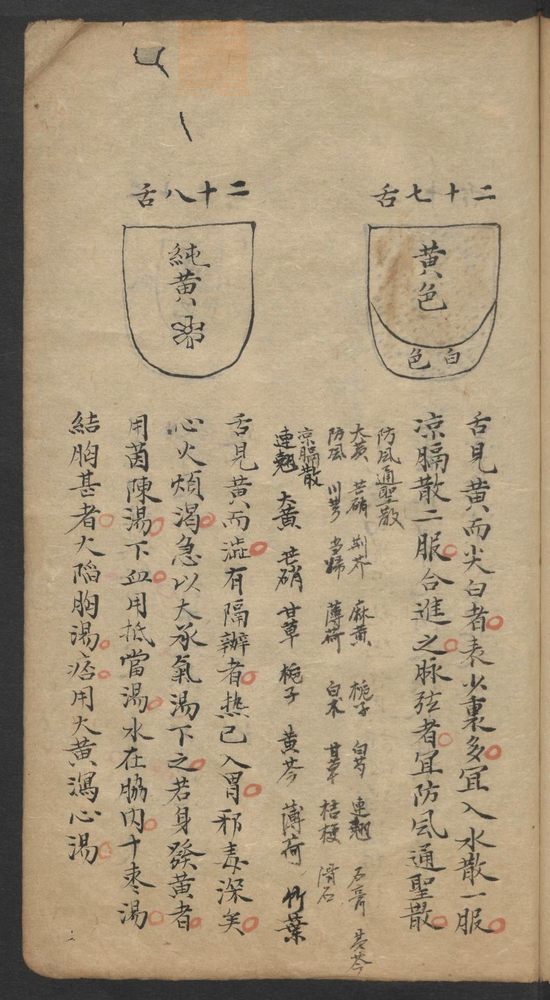 二十七舌
黄色
白色
舌見黄而尖白者表少裏多宜入水散一服
凉膈散二服合進之脉弦者宜防風通聖散
防風通聖散
大黄 芒硝 荆芥 麻黄 梔子 白芍 連翹 石膏 黄芩
防風 川芎 当歸 薄荷 白木 甘草 桔梗 滑石
凉膈散
連翹 大黄 芒硝 甘草 梔子 黄芩 薄荷 竹葉
二十八舌
純黄
舌見黄而澁有隔辦者熱已入胃邪毒深矣
心火煩渴急以大承氣湯下之若身發黄者
用茵陳湯下血用抵當湯水在脇内十枣湯
結胸甚者大陷胸湯痞用大黄瀉心湯